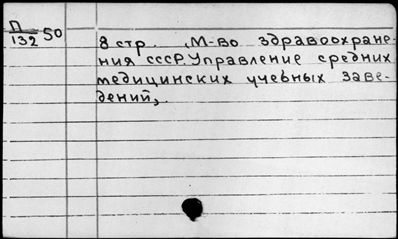 П 50
132
8 стр. , М-во здравоохране-
ния СССР. Управление средних
медицинских учебных заве-
дений,.